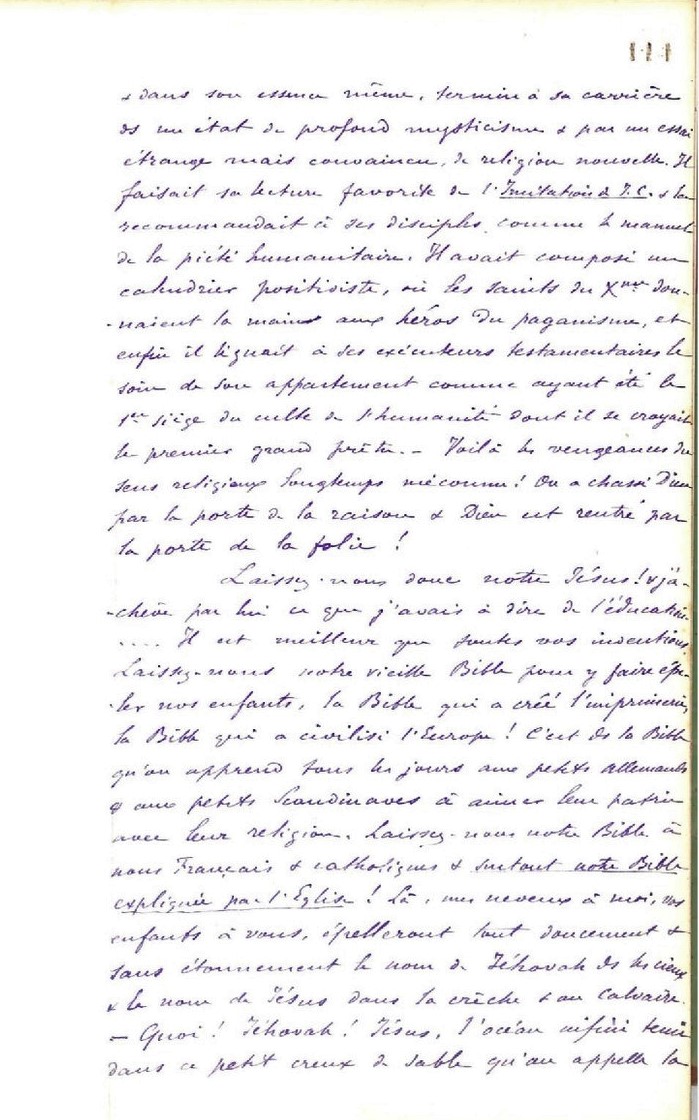 111
& dans son essence même, termina sa carrière
ds un état de profond mysticisme & par un essai
étrange mais convaincu, de religion nouvelle. Il
faisait sa lecture favorite de l'Imitation de J.C. & la
recommandait à ses disciples comme le manuel
de la piété humanitaire. Il avait composé un
calendrier positiviste, où les saints du Xnme don-
-naient la main aux héros du paganisme, et
enfin il léguait à ses exécuteurs testamentaires le
soin de son appartement comme ayant été le
1er siège du culte de l'humanité dont il se croyait
le premier grand prêtre. – Voilà les vengeances du
sens religieux longtemps méconnu! On a chassé Dieu
par la porte de la raison & Dieu est rentré par
la porte de la folie!
Laissez-nous donc notre Jésus! & j'a-
-chève par lui ce que j'avais à dire de l'éducation
.... Il est meilleur que toutes vos inventions.
Laissez-nous notre vieille Bible pour y faire épe-
-ler nos enfants, la Bible qui a créé l'imprimerie,
la Bible qui a civilisé l'Europe! C'est ds la Bible
qu'on apprend tous les jours aux petits allemands
& aux petits Scandinaves à aimer leur patrie
avec leur religion. Laissez-nous notre Bible à
nous Français & catholiques & surtout notre Bible
expliquée par l'Eglise! Là, mes neveux à moi, vos
enfants à vous, épelleront tout doucement &
sans étonnement le nom de Jéhovah ds les cieux
& le nom de Jésus dans la crèche & au Calvaire.
– Quoi! Jéhovah! Jésus, l'océan infini tenir
dans ce petit creux de sable qu'on appelle la